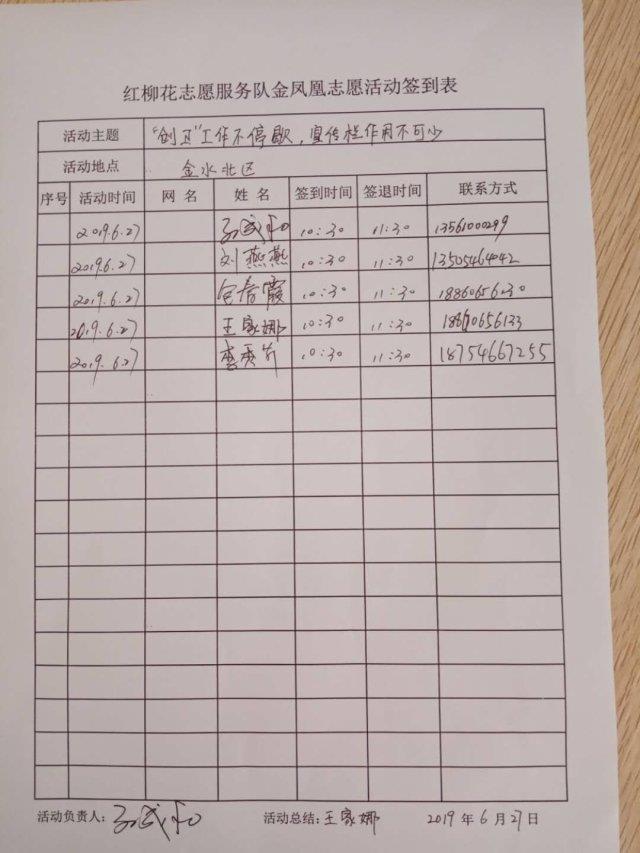 红柳花志愿服务队金凤凰志愿活动签到表
活动主题 "创卫"工作不停歇，宣传栏作用不可少
活动地点 金水北区
序号 活动时间 网名 姓名 签到时间 签退时间 联系方式
2019.6.27 10:30 11:30 13561000299
2019.6.27 刘燕燕 10:30 11:30 13505464042
2019.6.27 包春霞 10:30 11:30 18860656030
2019.6.27 王家娜 10:30 11:30
2019.6.27 10:30 11:30 18754667255
活动负责人: 活动总结: 王家娜 2019年6月27日